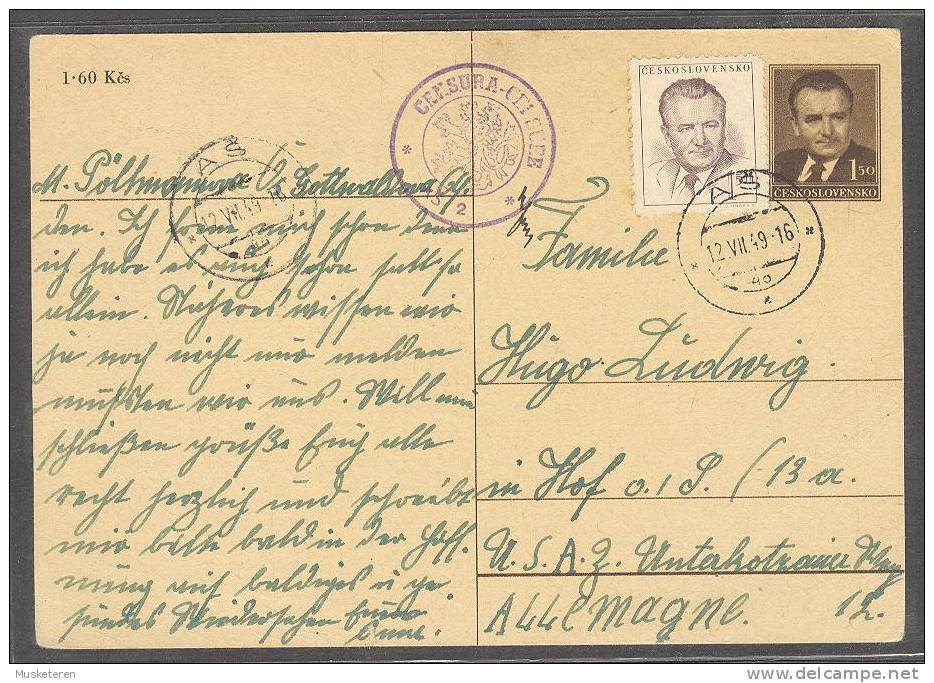 1·60 Kčs
ČESKOSLOVENSKO
1 50
ČESKOSLOVENSKO
CENSURA-CENSURE
2
AŠ
12.VII.49-16
AŠ
12.VII.49-16
M. Gottwaldova
den. Ich freue mich schon denn
ich habe es auch schon satt so
allein. Näheres wissen wir
ja noch nicht nur melden
mußten wir uns. Will nun
schließen grüße Euch alle
recht herzlich und schreibt
mir bitte bald in der Hoff-
nung auf baldiges u. ge-
sundes Wiedersehen Eure
Anne.
Familie
Hugo Ludwig.
in Hof a. S. (13 a.
U.S.A.Z. Unterkotzauer Weg
Allemagne. 12.
Musketeren
delcampe.net